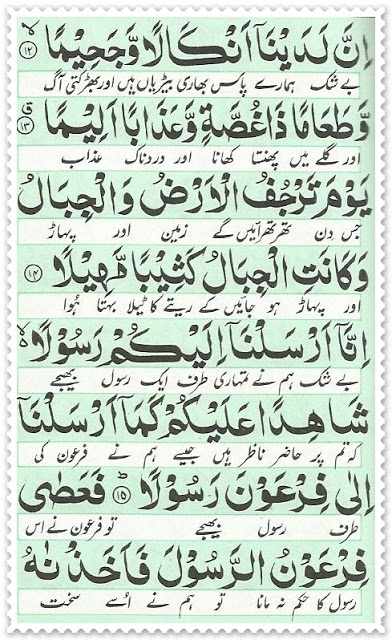 اِنَّ لَدَیْنَاۤ اَنْكَالًا وَّجَحِیْمًا ۙ﴿۱۲﴾
بے شک ہمارے پاس بھاری بیڑیاں ہیں اور بھڑکتی آگ
وَّطَعَامًا ذَا غُصَّةٍ وَّعَذَابًا اَلِیْمًا ۗ﴿۱۳﴾
اور گلے میں پھنستا کھانا اور دردناک عذاب
یَوْمَ تَرْجُفُ الْاَرْضُ وَالْجِبَالُ
جس دن تھرتھرائیں گے زمین اور پہاڑ
وَكَانَتِ الْجِبَالُ كَثِیْبًا مَّهِیْلًا ﴿۱۴﴾
اور پہاڑ ہو جائیں گے ریتے کا ٹیلا بہتا ہُوا
اِنَّاۤ اَرْسَلْنَاۤ اِلَیْكُمْ رَسُوْلًا ۙ۬
بے شک ہم نے تمہاری طرف ایک رسول بھیجے
شَاهِدًا عَلَیْكُمْ كَمَاۤ اَرْسَلْنَاۤ
کہ تم پر حاضر ناظر ہیں جیسے ہم نے فرعون کی
اِلٰی فِرْعَوْنَ رَسُوْلًا ؕ﴿۱۵﴾ فَعَصٰی
طرف رسول بھیجے تو فرعون نے اس
فِرْعَوْنُ الرَّسُوْلَ فَاَخَذْنٰهُ
رسول کا حکم نہ مانا تو ہم نے اُسے سخت